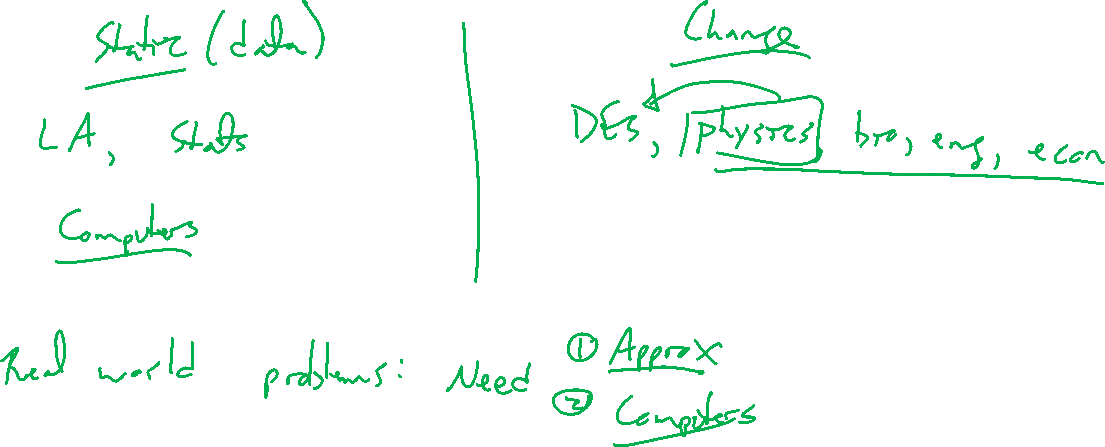 Static (data)
LA, Stats
Computers
Change
DEs, physics bio, eng, econ
Real world problems: Need ① Approx
② Computers